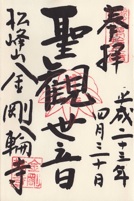 奉拝
平成二十三年
四月三十日
聖観世音
松峰山金剛輪寺